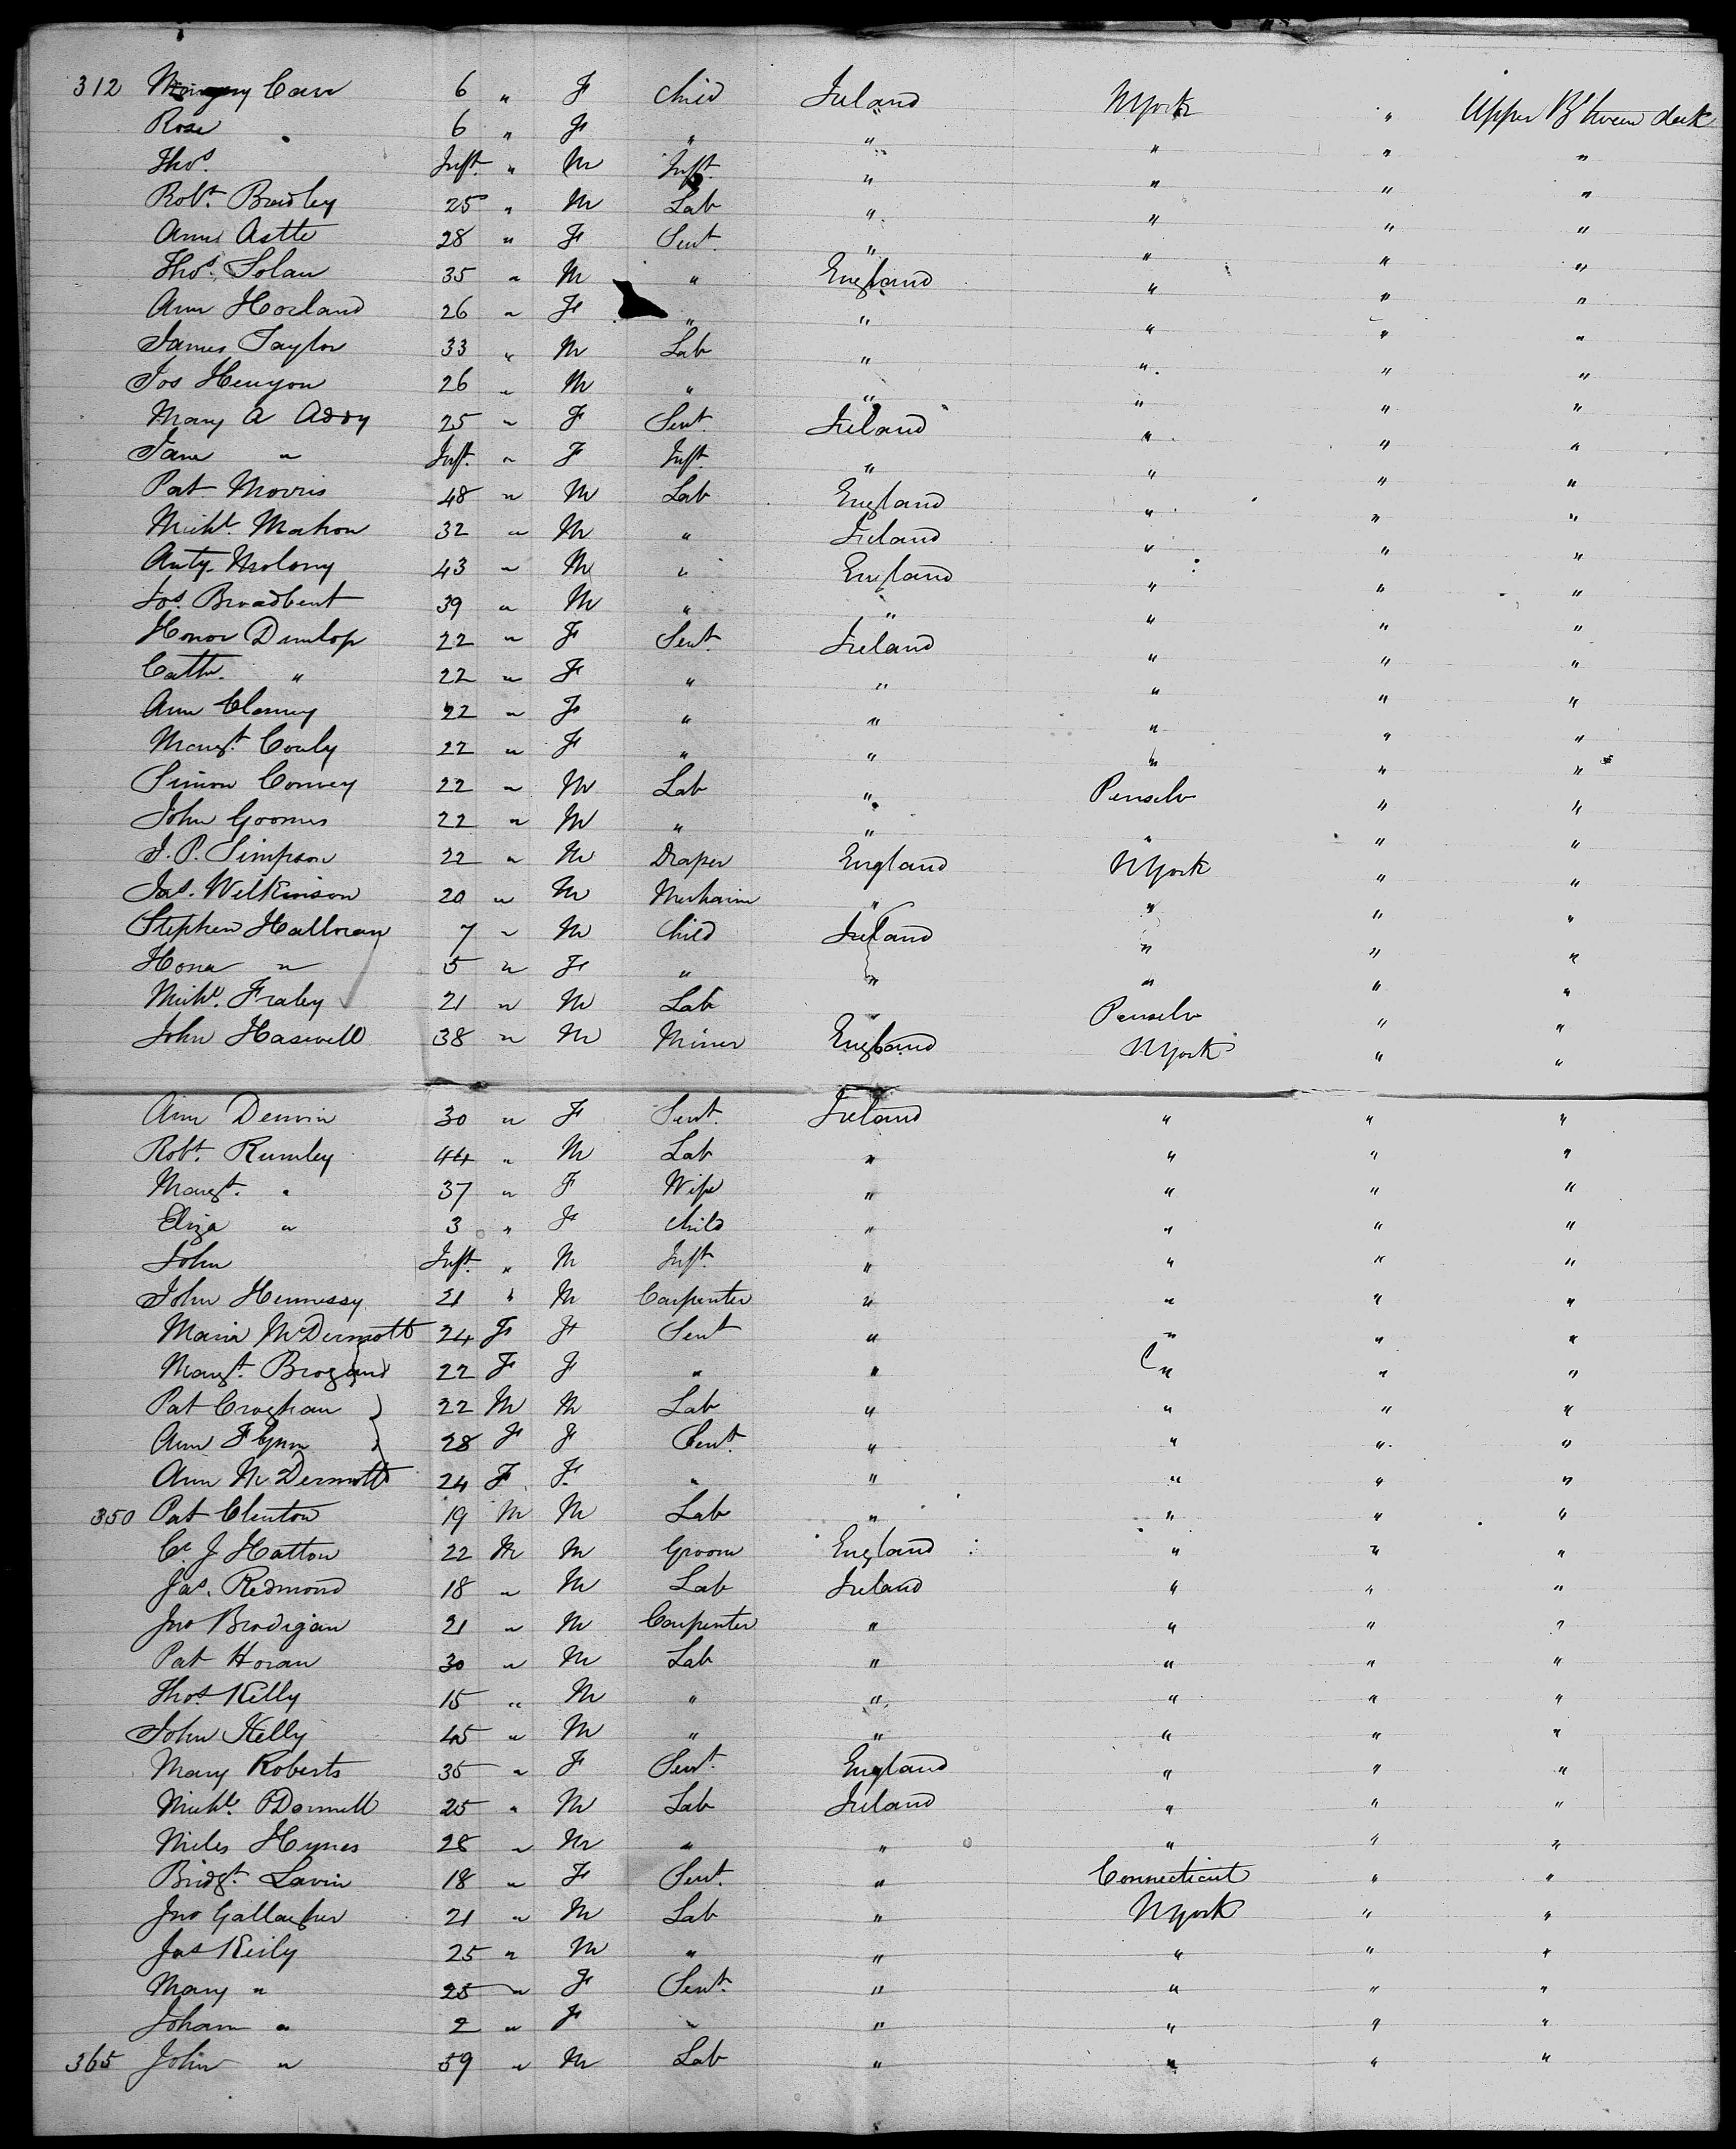 312 Carr 6 " F Child Ireland NYork " Upper Bt'tween deck
Rose " 6 " F " " " " "
Thos. Inft. " M Inft. " " " "
Robt. Bradley 25 " M Lab " " " "
Ann Astle 28 " F Sevt. " " " "
Thos. Solan 35 " M " England " " "
Ann Horland 26 " F " " " " "
James Taylor 33 " M Lab " " " "
Jos Henyon 26 " M " " " " "
Mary A Addy 25 " F Sevt. Ireland " " "
Jane " Inft. " F Inft. " " " "
Pat Morris 48 " M Lab England " " "
Michl. Mahon 32 " M " Ireland " " "
Anty. Molony 43 " M " England " " "
Jos. Broadbent 39 " M " " " " "
Honor Dunlop 22 " F Sevt. Ireland " " "
Cath. " 22 " F " " " " "
Ann Clancy 22 " F " " " " "
Margt. Conly 22 " F " " " " "
Simon Convey 22 " M Lab " Penselv " "
John Goomes 22 " M " " " " "
J. P. Simpson 22 " M Draper England NYork " "
Jas. Wilkinson 20 " M " " " "
Stephen Halloran 7 " M Child Ireland " " "
Hona " 5 " F " " " " "
Michl. Fraley 21 " M Lab " Penselv " "
John Haswell 38 " M Miner England NYork " "
Ann Dennin 30 " F Sevt. Ireland " " "
Robt. Rumley 44 " M Lab " " " "
Margt. " 37 " F Wife " " " "
Eliza " 3 " F Child " " " "
John Inft. " M Inft. " " " "
John Hennessy 21 " M Carpenter " " " "
Maria McDermott 24 F F Sevt " " " "
Margt. Brogan 22 F F " " " " "
Pat Croghan 22 M M Lab " " " "
Ann Flynn 28 F F Sevt. " " " "
Ann McDermott 24 F F " " " " "
350 Pat Clinton 19 M M Lab " " " "
C. J Hatton 22 M M Groom England " " "
Jas. Redmond 18 " M Lab Ireland " " "
Jno Brodigan 21 " M Carpenter " " " "
Pat Horan 30 " M Lab " " " "
Thos. Kelly 15 " M " " " " "
John Kelly 45 " M " " " " "
Mary Roberts 35 " F Sevt. England " " "
Michl. ODonnell 25 " M Lab Ireland " " "
Miles Hynes 28 " M " " " " "
Bridgt. Lavin 18 " F Sevt. " Connecticut " "
Jno Gallagher 21 " M Lab " NYork " "
Jas Reily 25 " M " " " " "
Mary " 25 " F Sevt. " " " "
Johan " 2 " F " " " " "
365 John " 59 " M Lab " " " "